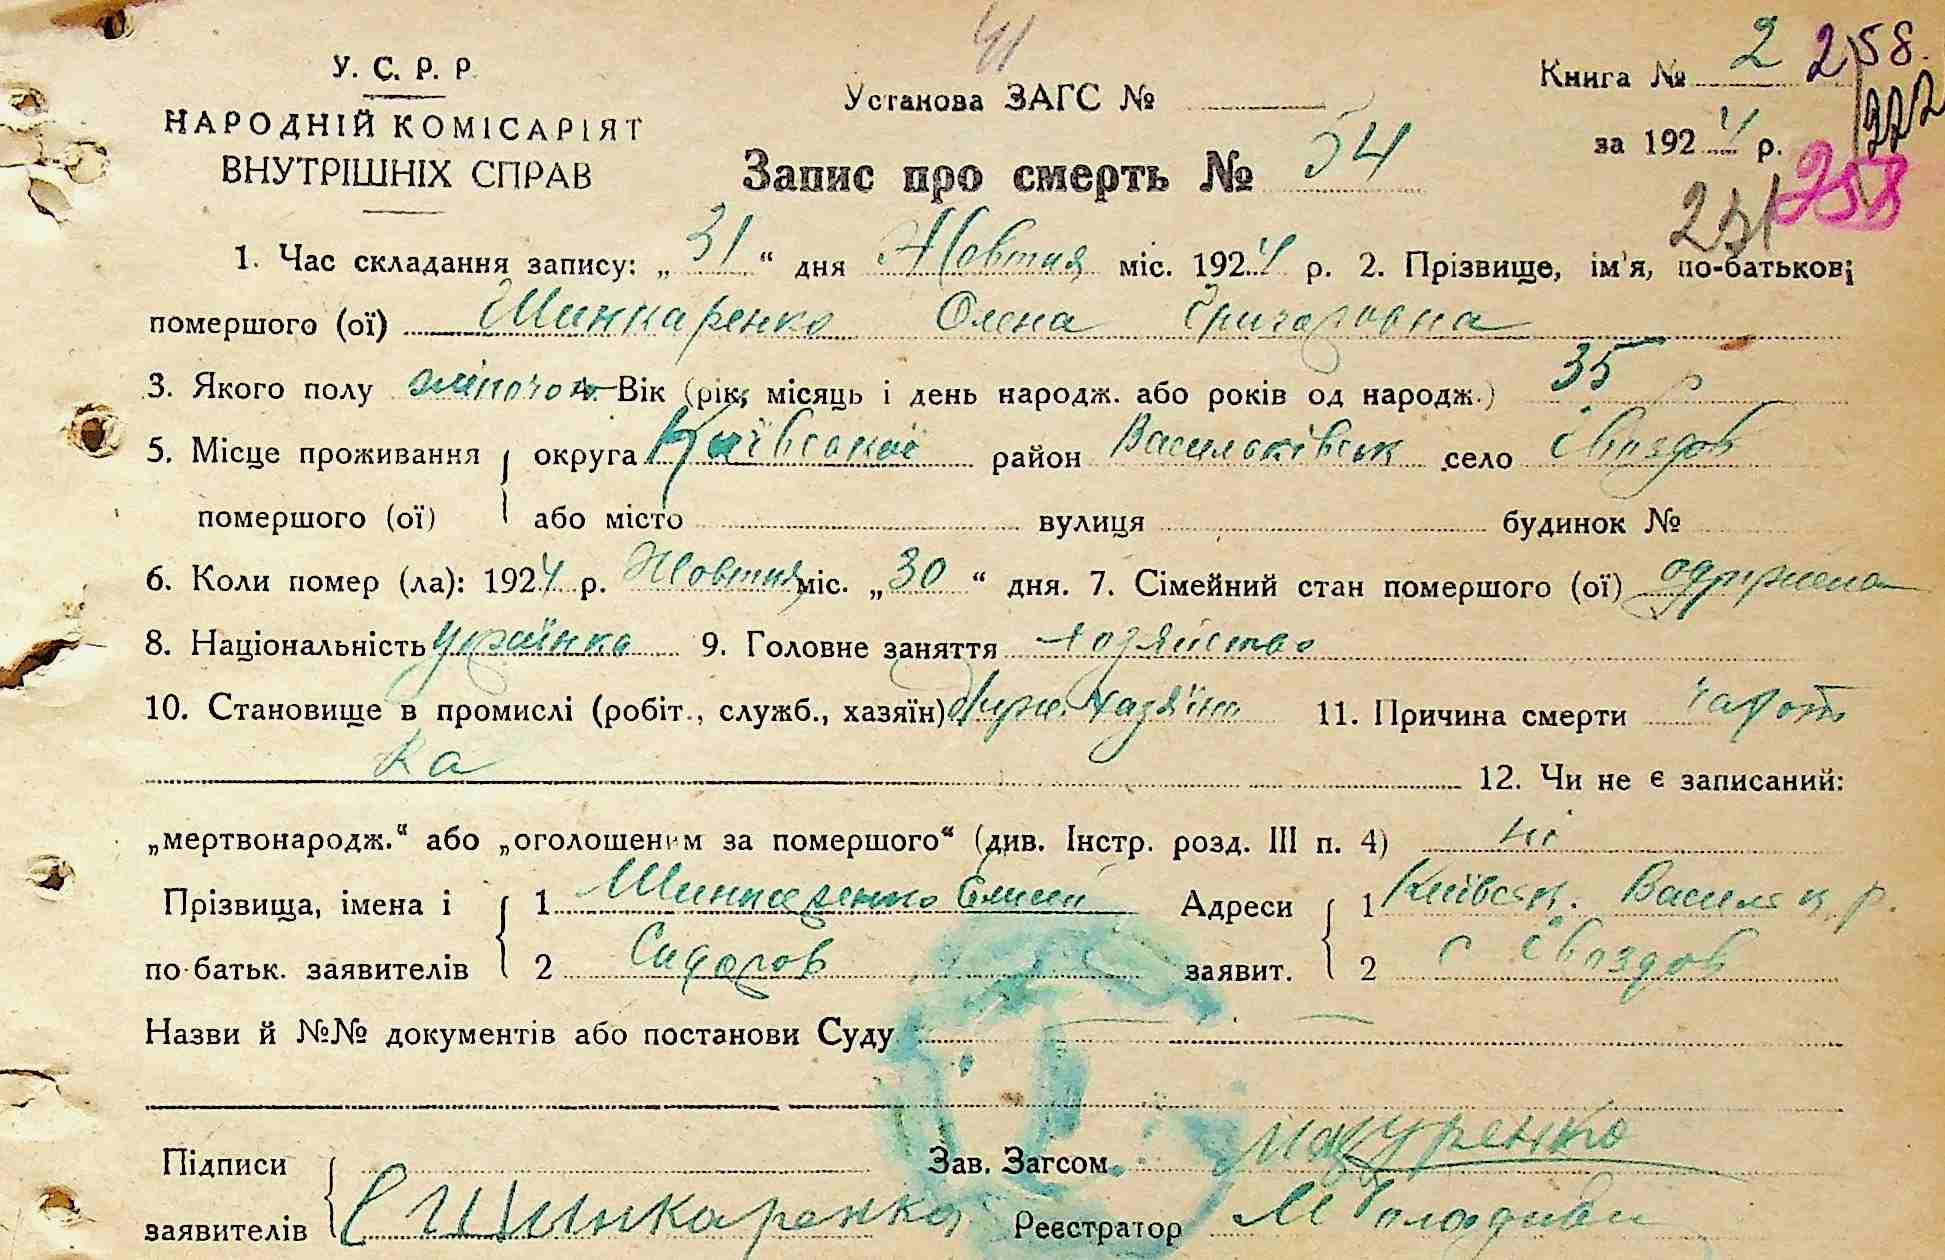 41
У. С. Р. Р.
НАРОДНІЙ КОМІСАРІЯТ
ВНУТРІШНІХ СПРАВ
Установа ЗАГС №
Запис про смерть № 54
Книга № 2 258.
за 1924 р.
231 258
1. Час складання запису: „31“ дня Жовтня міс. 1924 р. 2. Прізвище, ім'я, по-батькові
помершого (ої) Шинкаренко Олена Григоровна
3. Якого полу жіночого 4. Вік (рік, місяць і день народж. або років од народж.) 35 р
5. Місце проживання округа Київської район Васильківськ село Гвоздов
помершого (ої) або місто вулиця будинок №
6. Коли помер (ла): 1924 р. Жовтня міс. „30“ дня. 7. Сімейний стан помершого (ої)
8. Національність українка 9. Головне заняття хозяйство
10. Становище в промислі (робіт., служб., хазяїн) хазяїна 11. Причина смерти чахот
ка 12. Чи не є записаний:
„мертвонародж.“ або „оголошеним за помершого“ (див. Інстр. розд. III п. 4) ні
Прізвища, імена і 1 Шинкаренко Адреси 1 Київськ. Васильк. р.
по батьк. заявителів 2 Сидоров заявит. 2 с Гвоздов
Назви й №№ документів або постанови Суду
Підписи Зав. Загсом
заявителів С Шинкаренко Реєстратор М